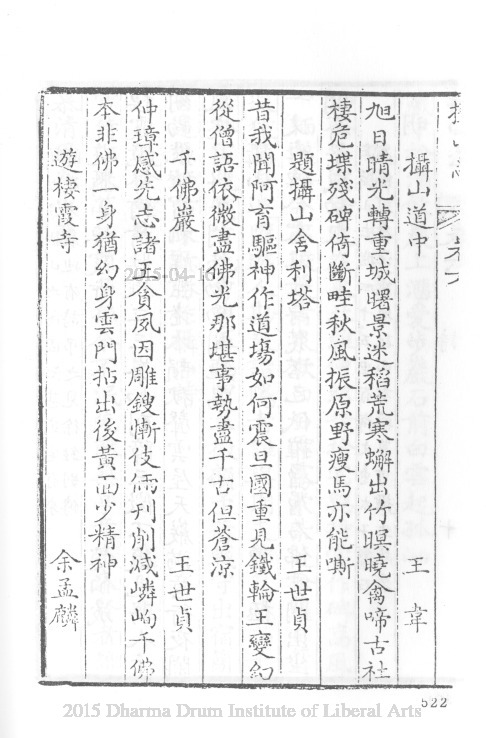 攝山志 卷六
攝山道中 王韋
旭日晴光轉重城曙景迷稻荒寒蠏出竹暝曉禽啼古社
棲危堞殘碑倚斷畦秋風振原野瘦馬亦能嘶
題攝山舍利塔 王世貞
昔我聞阿育驅神作道塲如何震旦國重見鐵輪王變幻
從僧語依微盡佛光那堪事勢盡千古但蒼涼
千佛巖 王世貞
仲璋感先志諸王貪夙因雕鎪慚伎倆刊削減嶙峋千佛
本非佛一身猶幻身雲門拈出後黃面少精神
遊棲霞寺 余孟麟
2015-04-10
522
2015 Dharma Drum Institute of Liberal Arts